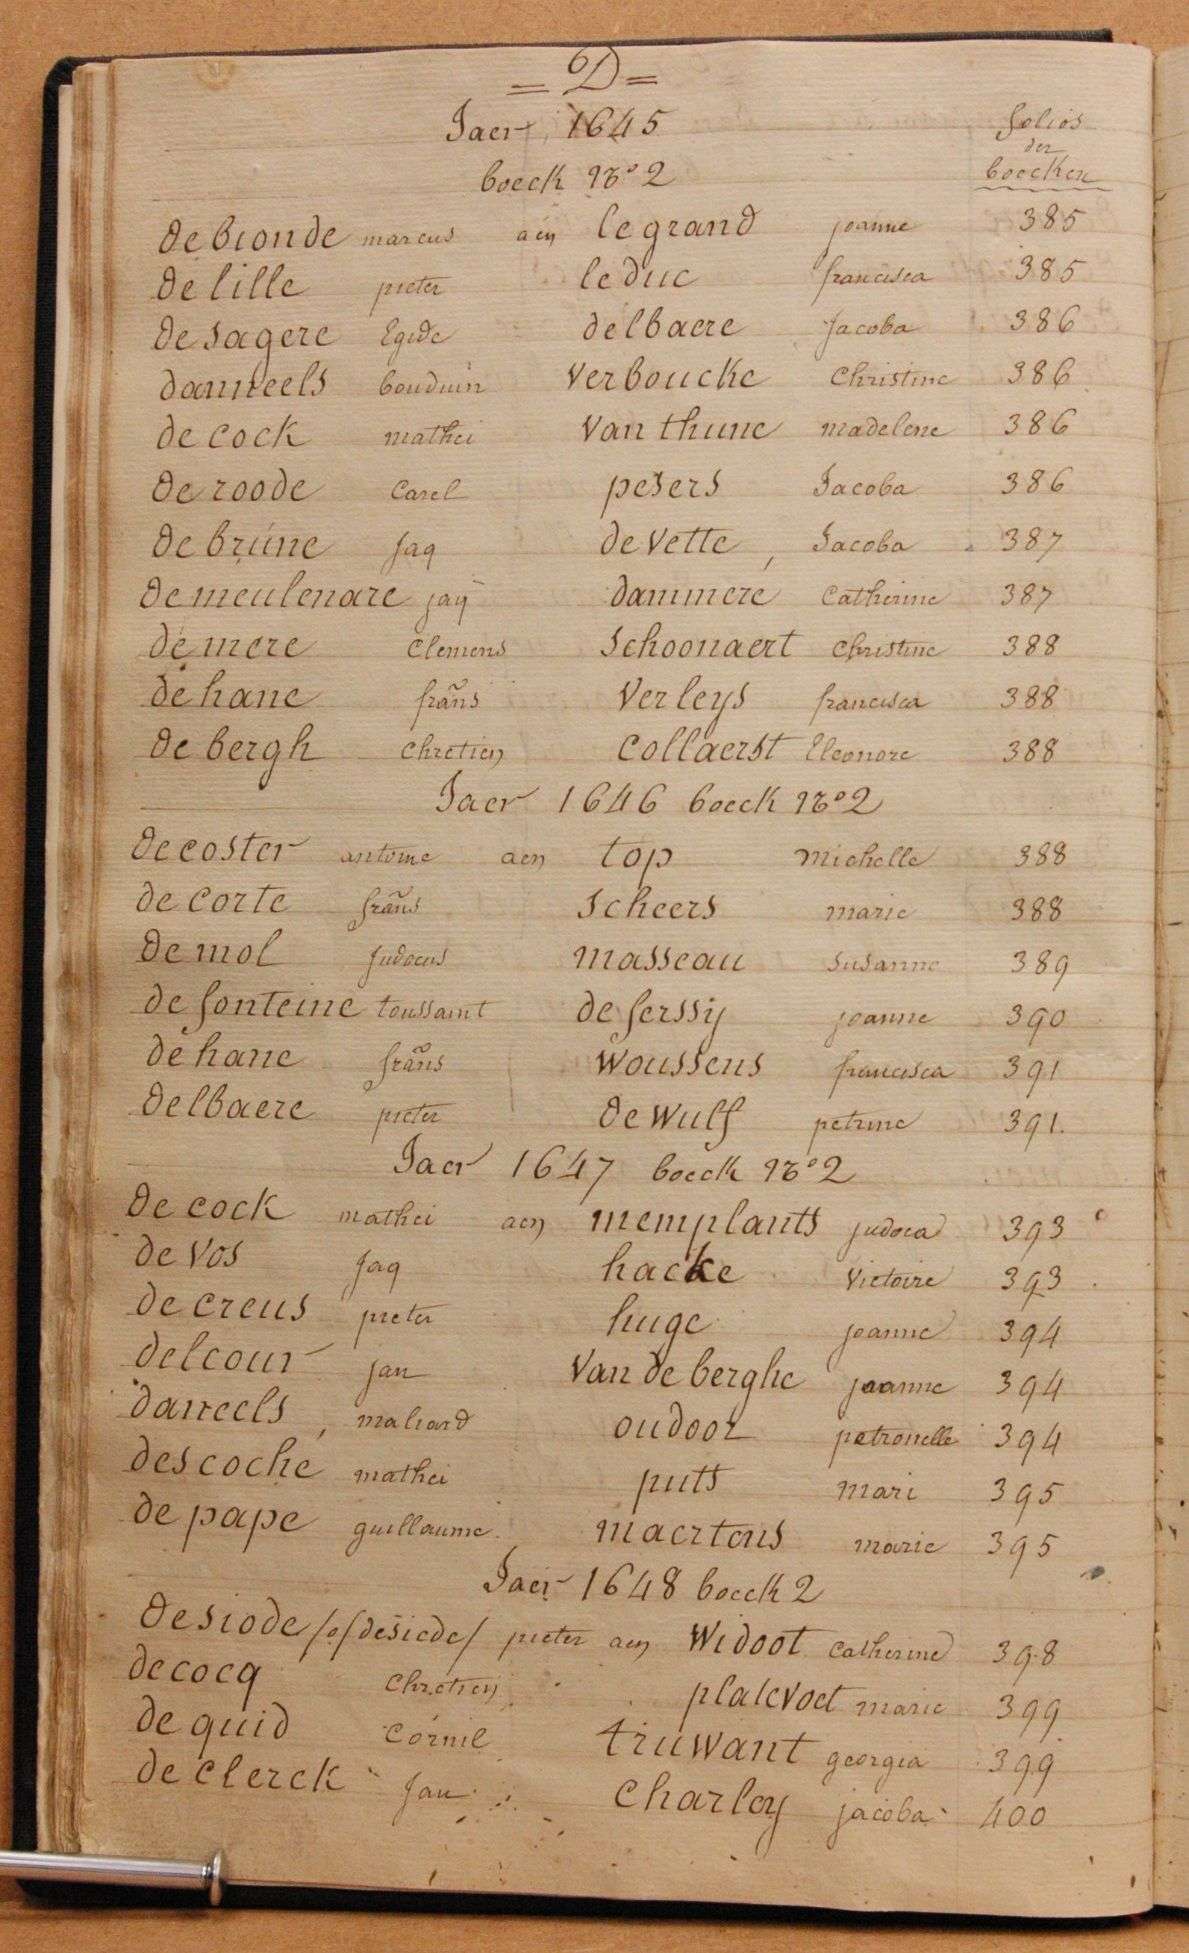 = D =
Jaer 1645
folios
der
boecken
boeck No 2
de bionde marcus aen le grand joanne 385
de lille pieter le duc francisca 385
de sagere Egide delbaere Jacoba 386
danneels bouduin Verboucke Christine 386
de cock mathei Van thune madelene 386
de roode Carel pesers Jacoba 386
de brune Jaq de Vette, Jacoba 387
de meulenare jaq dammere Catherine 387
de mere Clemens Schoonaert Christine 388
de hane frañs Verleys francisca 388
de bergh Chretien Collaerst Eleonore 388
Jaer 1646 boeck No 2
de coster antoine aen top michelle 388
de Corte frañs Scheers marie 388
de mol Judocus masseau susanne 389
de fonteine toussaint de ferssy joanne 390
de hane frañs Woussens francisca 391
delbaere pieter de Wulf petrine 391.
Jaer 1647 boeck No 2
de cock mathei aen memplants judoca 393
de Vos Jaq hacke Victoire 393
de creus pieter huge joanne 394
delcour jan Van de berghe joanne 394
danneels, maliard oudoor petronelle 394
descoche mathei puts mari 395
de pape guillaume maertens marie 395
Jaer 1648 boeck 2
de siode /of desiede/ pieter aen Widoot catherine 398
de cocq Chretien plakvoet marie 399
de quid Cornil truwant georgia 399
de Clerck Jan Charley jacoba 400